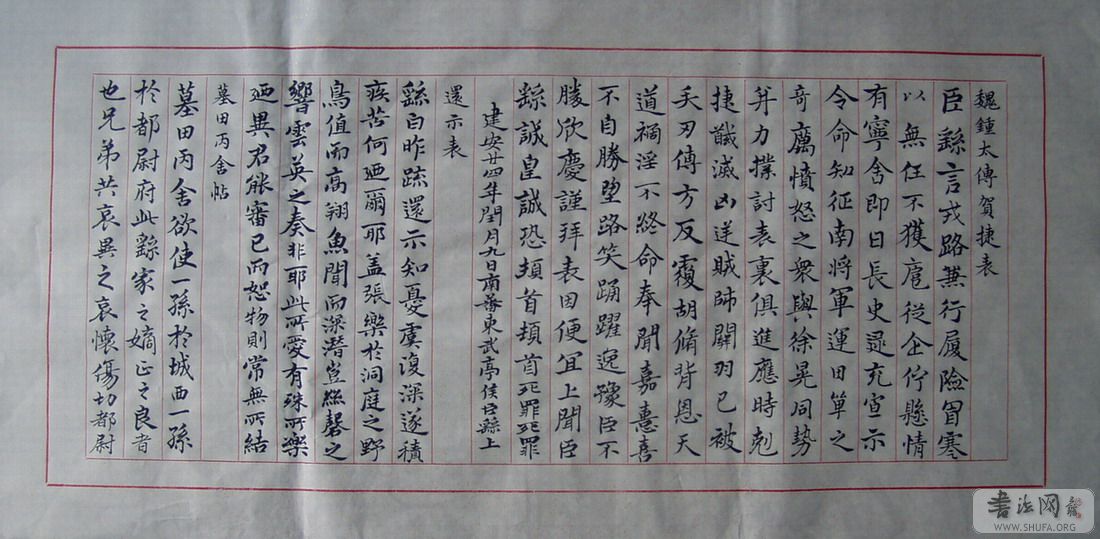 魏鍾太傅賀捷表
臣繇言戎路兼行履險冒寒
以無任不獲扈從企佇懸情
有寧舍即日長史逯充宣示
令命知征南將軍運田單之
奇厲憤怒之衆與徐晃同勢
并力撲討表裏俱進應時剋
捷馘滅凶逆賊帥關羽已被
矢刃傅方反覆胡脩背恩天
道禍淫不終命奉聞嘉憙喜
不自勝望路笑踊躍逸豫臣不
勝欣慶謹拜表因便宜上聞臣
繇誠皇誠恐頓首頓首死罪死罪
建安廿四年閏月九日南蕃東武亭侯臣繇上
還示表
繇白昨疏還示知憂虞復深遂積
疾苦何迺爾耶蓋張樂於洞庭之野
鳥值而高翔魚聞而深潛豈絲磬之
響雲英之奏非耶此所愛有殊所樂
迺異君能審己而恕物則常無所結
墓田丙舍帖
墓田丙舍欲使一孫於城西一孫
於都尉府此繇家之嫡正之良者
也兄弟共哀異之哀懷傷切都尉
書法网
WWW.SHUFA.ORG